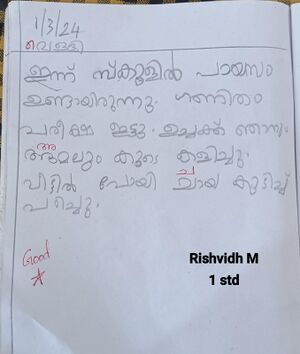 1/3/24
വെള്ളി
ഇന്ന് സ്കൂളിൽ പായസം
ഉണ്ടായിരുന്നു. ഗണിതം
പരീക്ഷ ഇട്ടു. ഉച്ചക്ക് ഞാനും
അമലും കൂടെ കളിച്ചു.
വീട്ടിൽ പോയി ചായ കുടിച്ച്
പഠിച്ചു.
Good
Rishvidh M
1 std